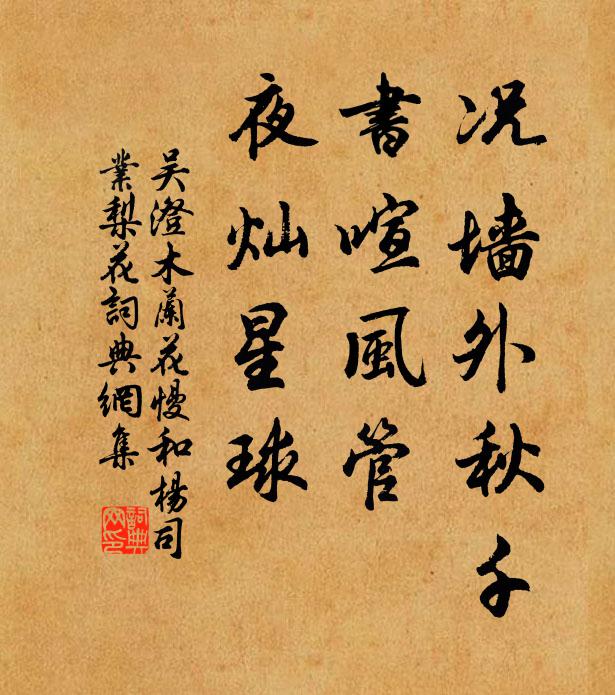 况墙外秋千
書喧風管
夜灿星球
吴澄木蘭花慢和楊司
業梨花詞典網集
詞典網印